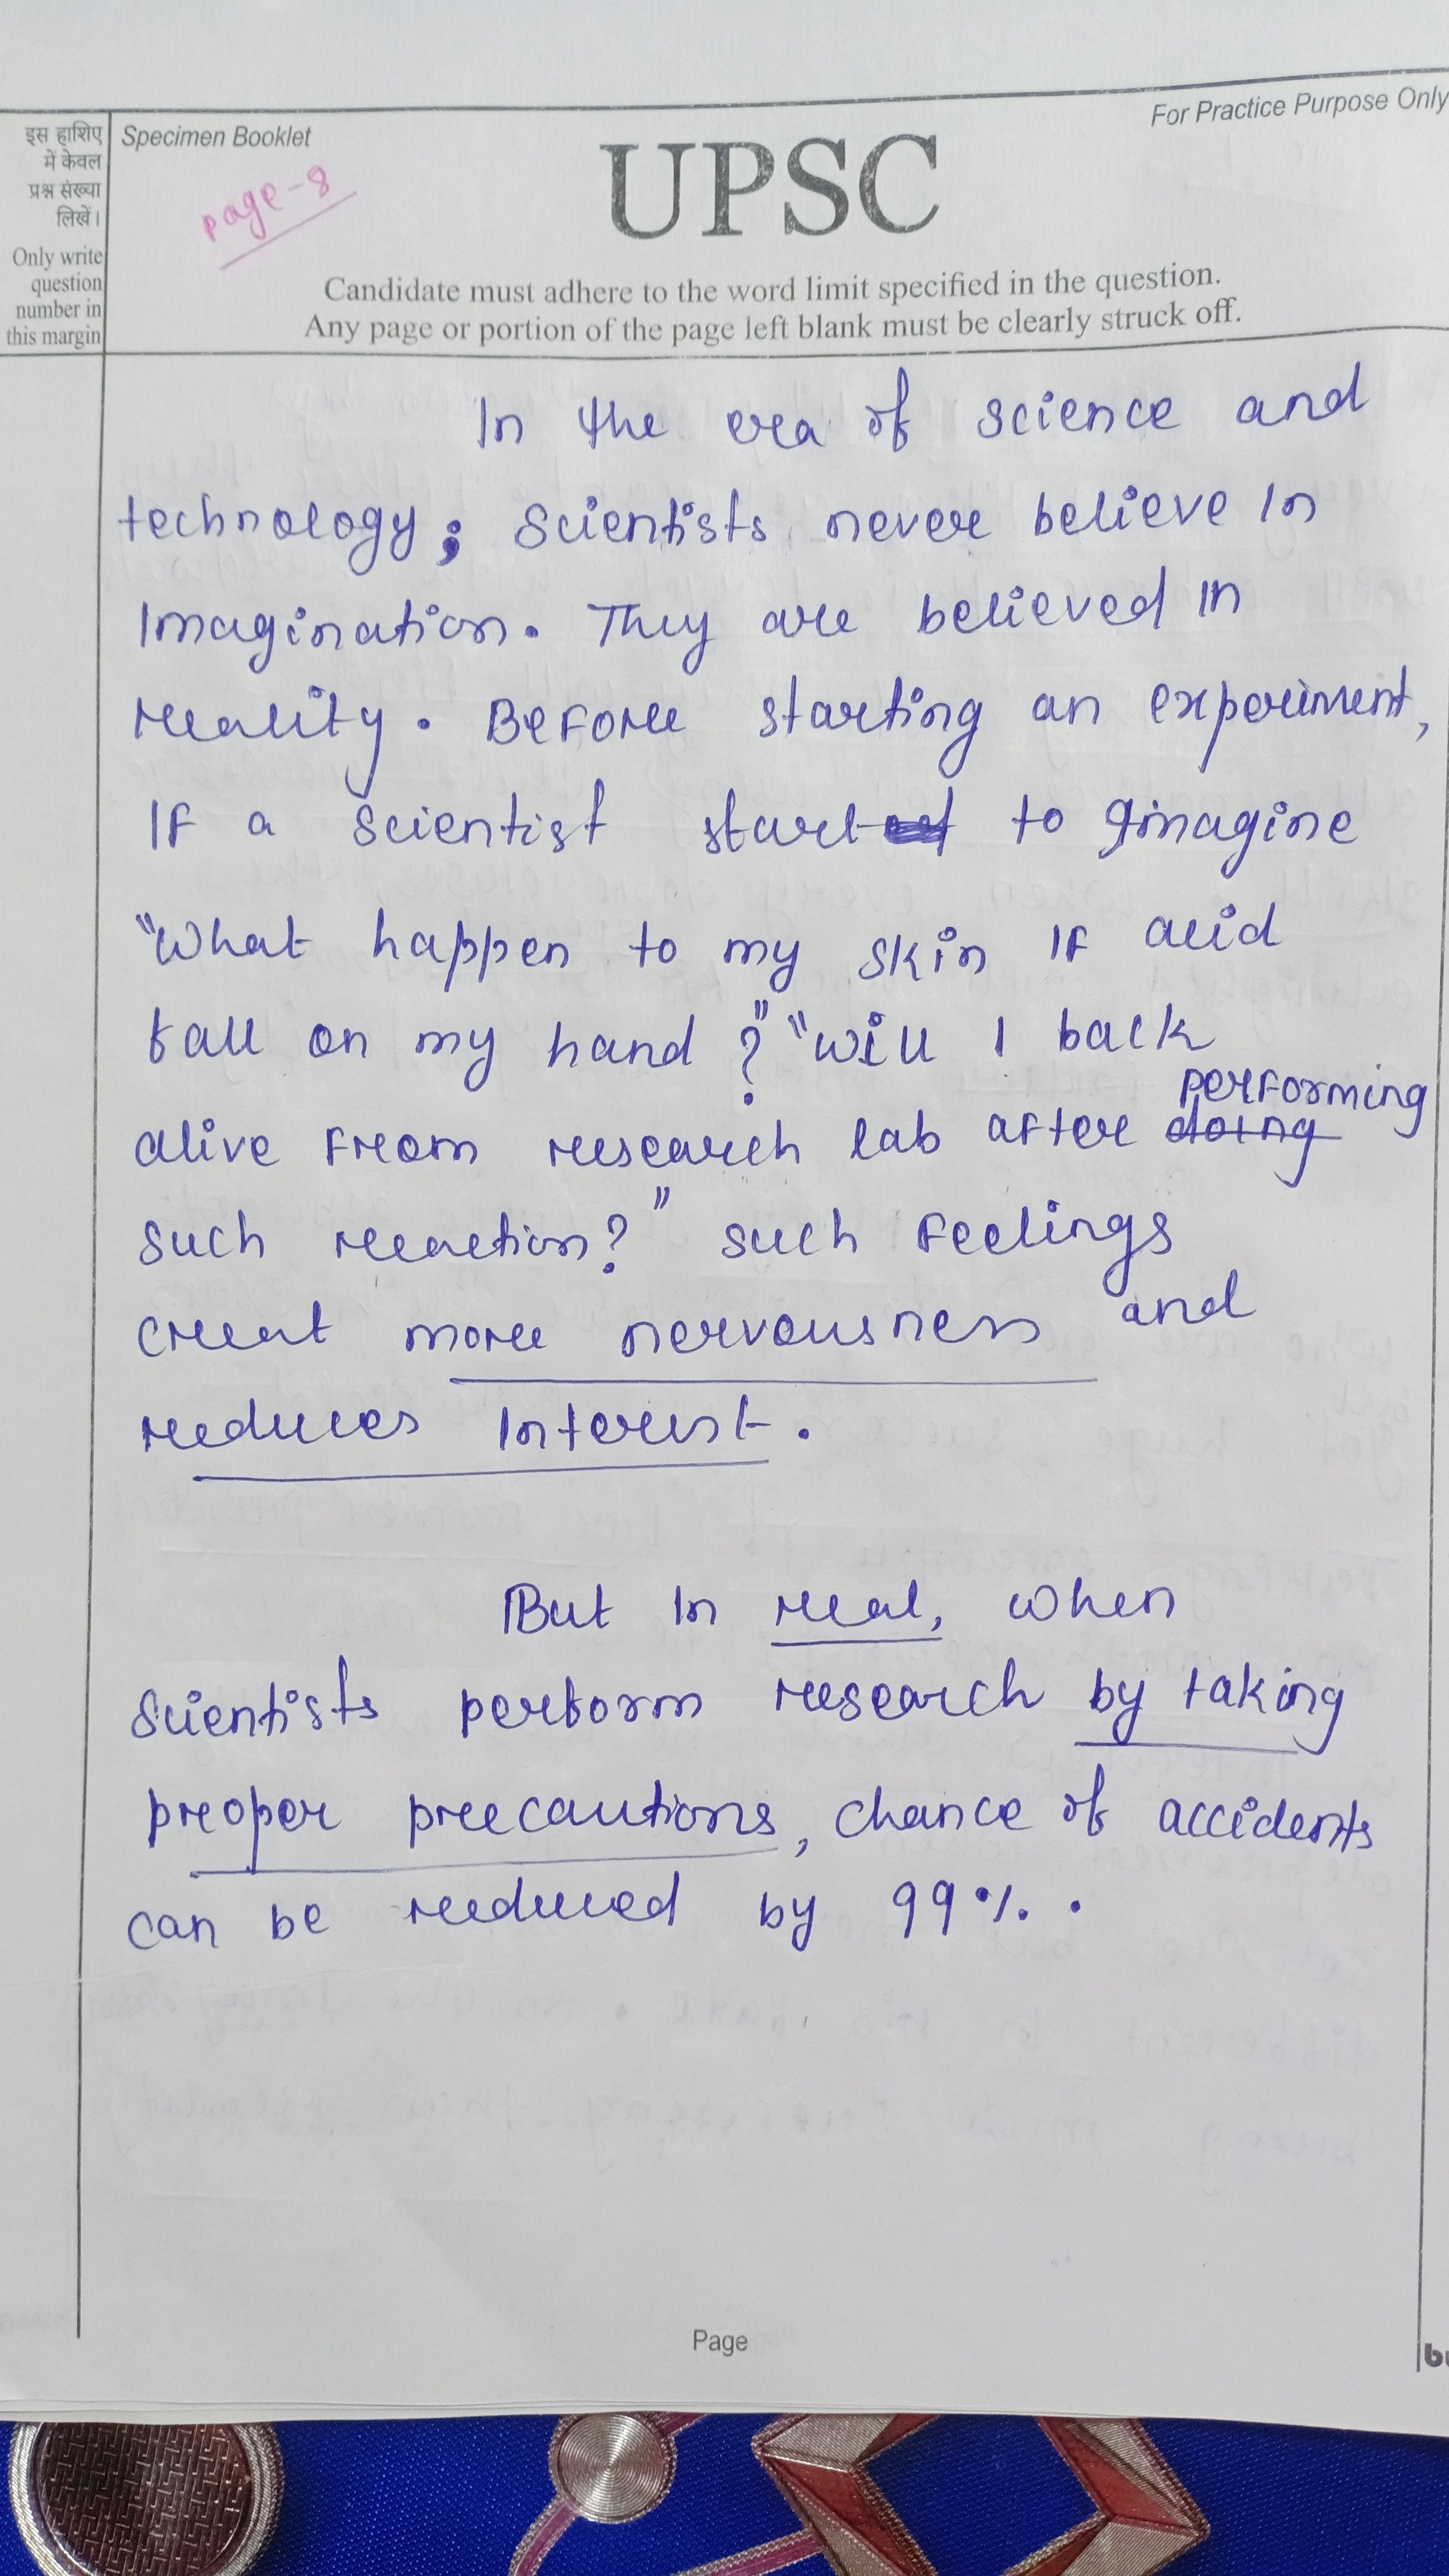 For Practice Purpose Only
इस हाशिए
में केवल
प्रश्न संख्या
लिखें।
Only write
question
number in
this margin
Specimen Booklet
page-8
UPSC
Candidate must adhere to the word limit specified in the question.
Any page or portion of the page left blank must be clearly struck off.
In the era of science and
technology; Scientists never believe in
imagination. They are believed in
reality. Before starting an experiment,
If a scientist start to Imagine
"What happen to my skin if acid
fall on my hand?" "Will I back
alive from research lab after doing performing
such reaction?" such feelings
creat more nervousness and
reduces interest.
But in real, when
scientists perform research by taking
proper precautions, chance of accidents
can be reduced by 99%.
Page